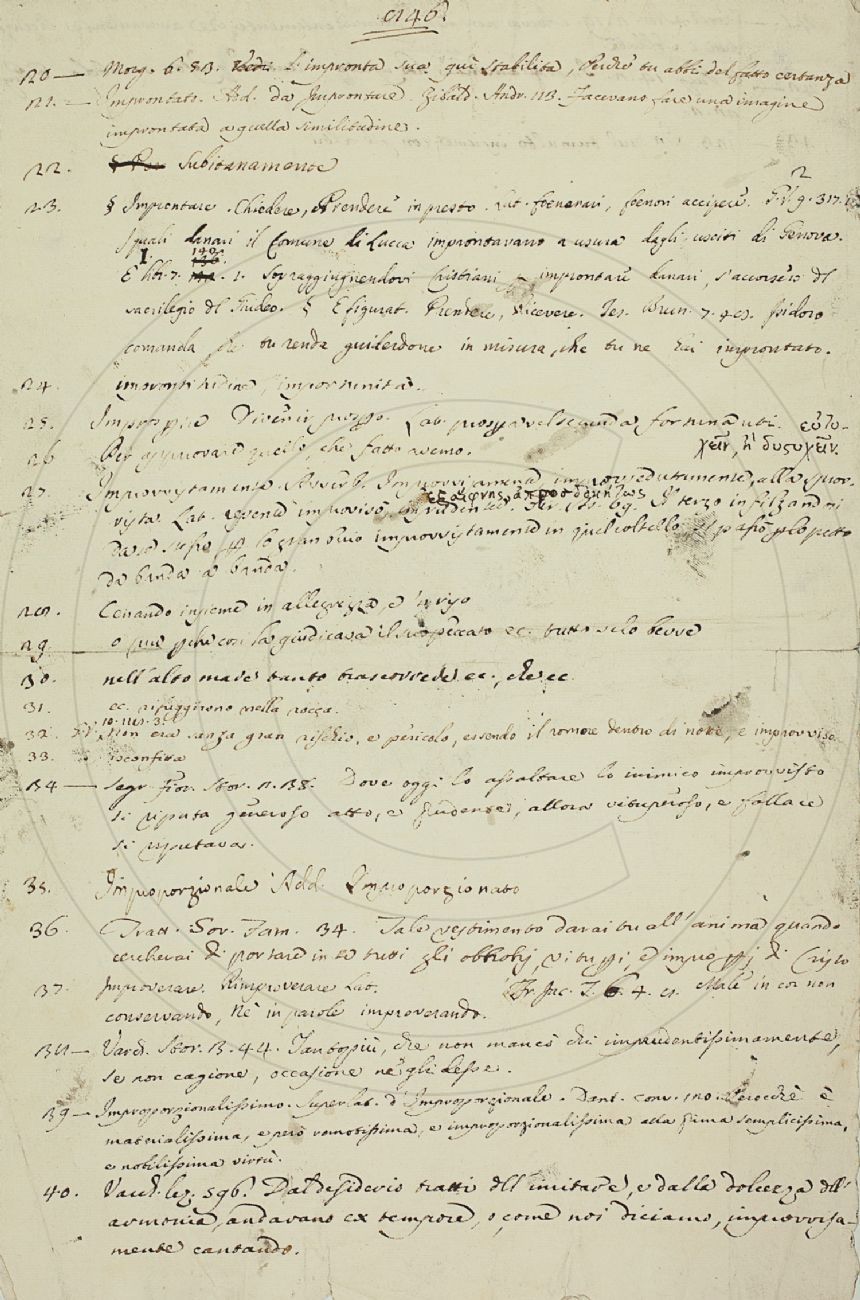 146.
20 — Morg. 6. 813. L'impronta sua qui stabilita, Perchè tu abbi del fatto certanza
21. — Improntato. Add. da Improntare. Zibald. Andr. 113. Facevano fare una imagine
improntata a quella similitudine.
22. Subitanamente
2
23. § Improntare. Chiedere, Prendere in presto. Lat. foenerari, foenori accipere. G. V. 9. 317.
I quali danari il Comune di Lucca improntavano a usura dagli usciti di Genova.
E lib. 7. 1. Sopraggiugnendovi Cristiani improntare danari, s'accorsero del
sacrilegio del Giudeo. § E figurat. Prendere, Ricevere. Tes. Brun. 7. Isidoro
comanda che tu renda guiderdone in misura, che tu ne hai improntato.
24. improntitudine, importunità.
25. Divenir prospo. Lat. prospera vel secunda fortuna uti. εὐτυ-
χεῖν, ἢ δυςυχεῖν.
26 Per approvare quello, che fatto avemo.
27. Improvvistamente Avverb. improvvedutamente, alla sprov-
ἐξαίφνης, ἀπροσδοκήτως
vista. Lat. repente improviso, 69. Il terzo infilzandosi
da se stesso improvvistamente in quel coltello, si passò lo petto
da banda a banda.
28. Cenando insieme in allegrezza, e 'n riso
29. o che pche con la giudicava il suo peccato ec. tutto se lo bevve
30. nell'alto mare tanto trascorrere ec., che ec
31. ec. rifuggirono nella rocca.
32. Non era sanza gran rischio, e pericolo, essendo il romore dentro di notte, e improvviso
33. sconfitta
34 — Segr. Fior. Stor. Dove oggi lo assaltare lo inimico improvvisto
si reputa generoso atto, e prudente, allora vituperoso, e fallace
si reputava.
35. Improporzionale Add. Improporzionato
36. Tratt. Gov. Fam. 34. Tale vestimento darai tu all'anima quando
cercherai di portare in te tutti gli obbrobrj, vituppj, e impropj di Cristo
37. Improverare. Rimproverare Lat. Fr. Jac. T. 6. 4. Male in cor non
conservando, Nè in parole improverando.
38 — Varch. Stor. 13. 44. Tantopiù, che non mancò chi imprudentissimamente,
se non cagione, occasione ne gli desse.
39 — Improporzionalissimo. Superlat. d'Improporzionale. Dant. conv. 110. Perocchè è
materialissima, e però remotissima, e improporzionalissima alla prima semplicissima,
e nobilissima virtù.
40. Varch. lez. 596. Dal desiderio tratti dell'imitare, e dalla dolcezza dell'
armonia, andavano ex tempore, o come noi diciamo, improvvisa-
mente cantando.